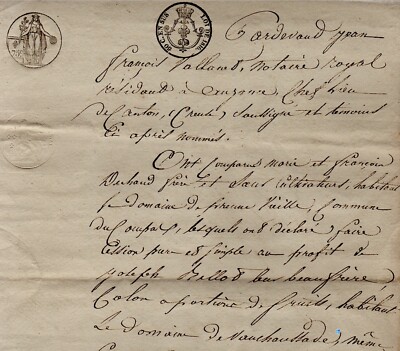 Pardevant Jean
François Valland, Notaire royal
résidant à Auzance, Chef lieu
de Canton, (Creuse) Soussigné et témoins
Ci après nommés.
Ont Comparus Marie et françois
Durand frère et Sœur Cultivateurs, habitant
le domaine de Vieille, Commune
du Compas, lesquels ont déclaré faire
Cession pure et simple au profit de
joseph leur beaufrère,
Colon a portion de fruits, habitant
Le Domaine de Vauchaussade, même